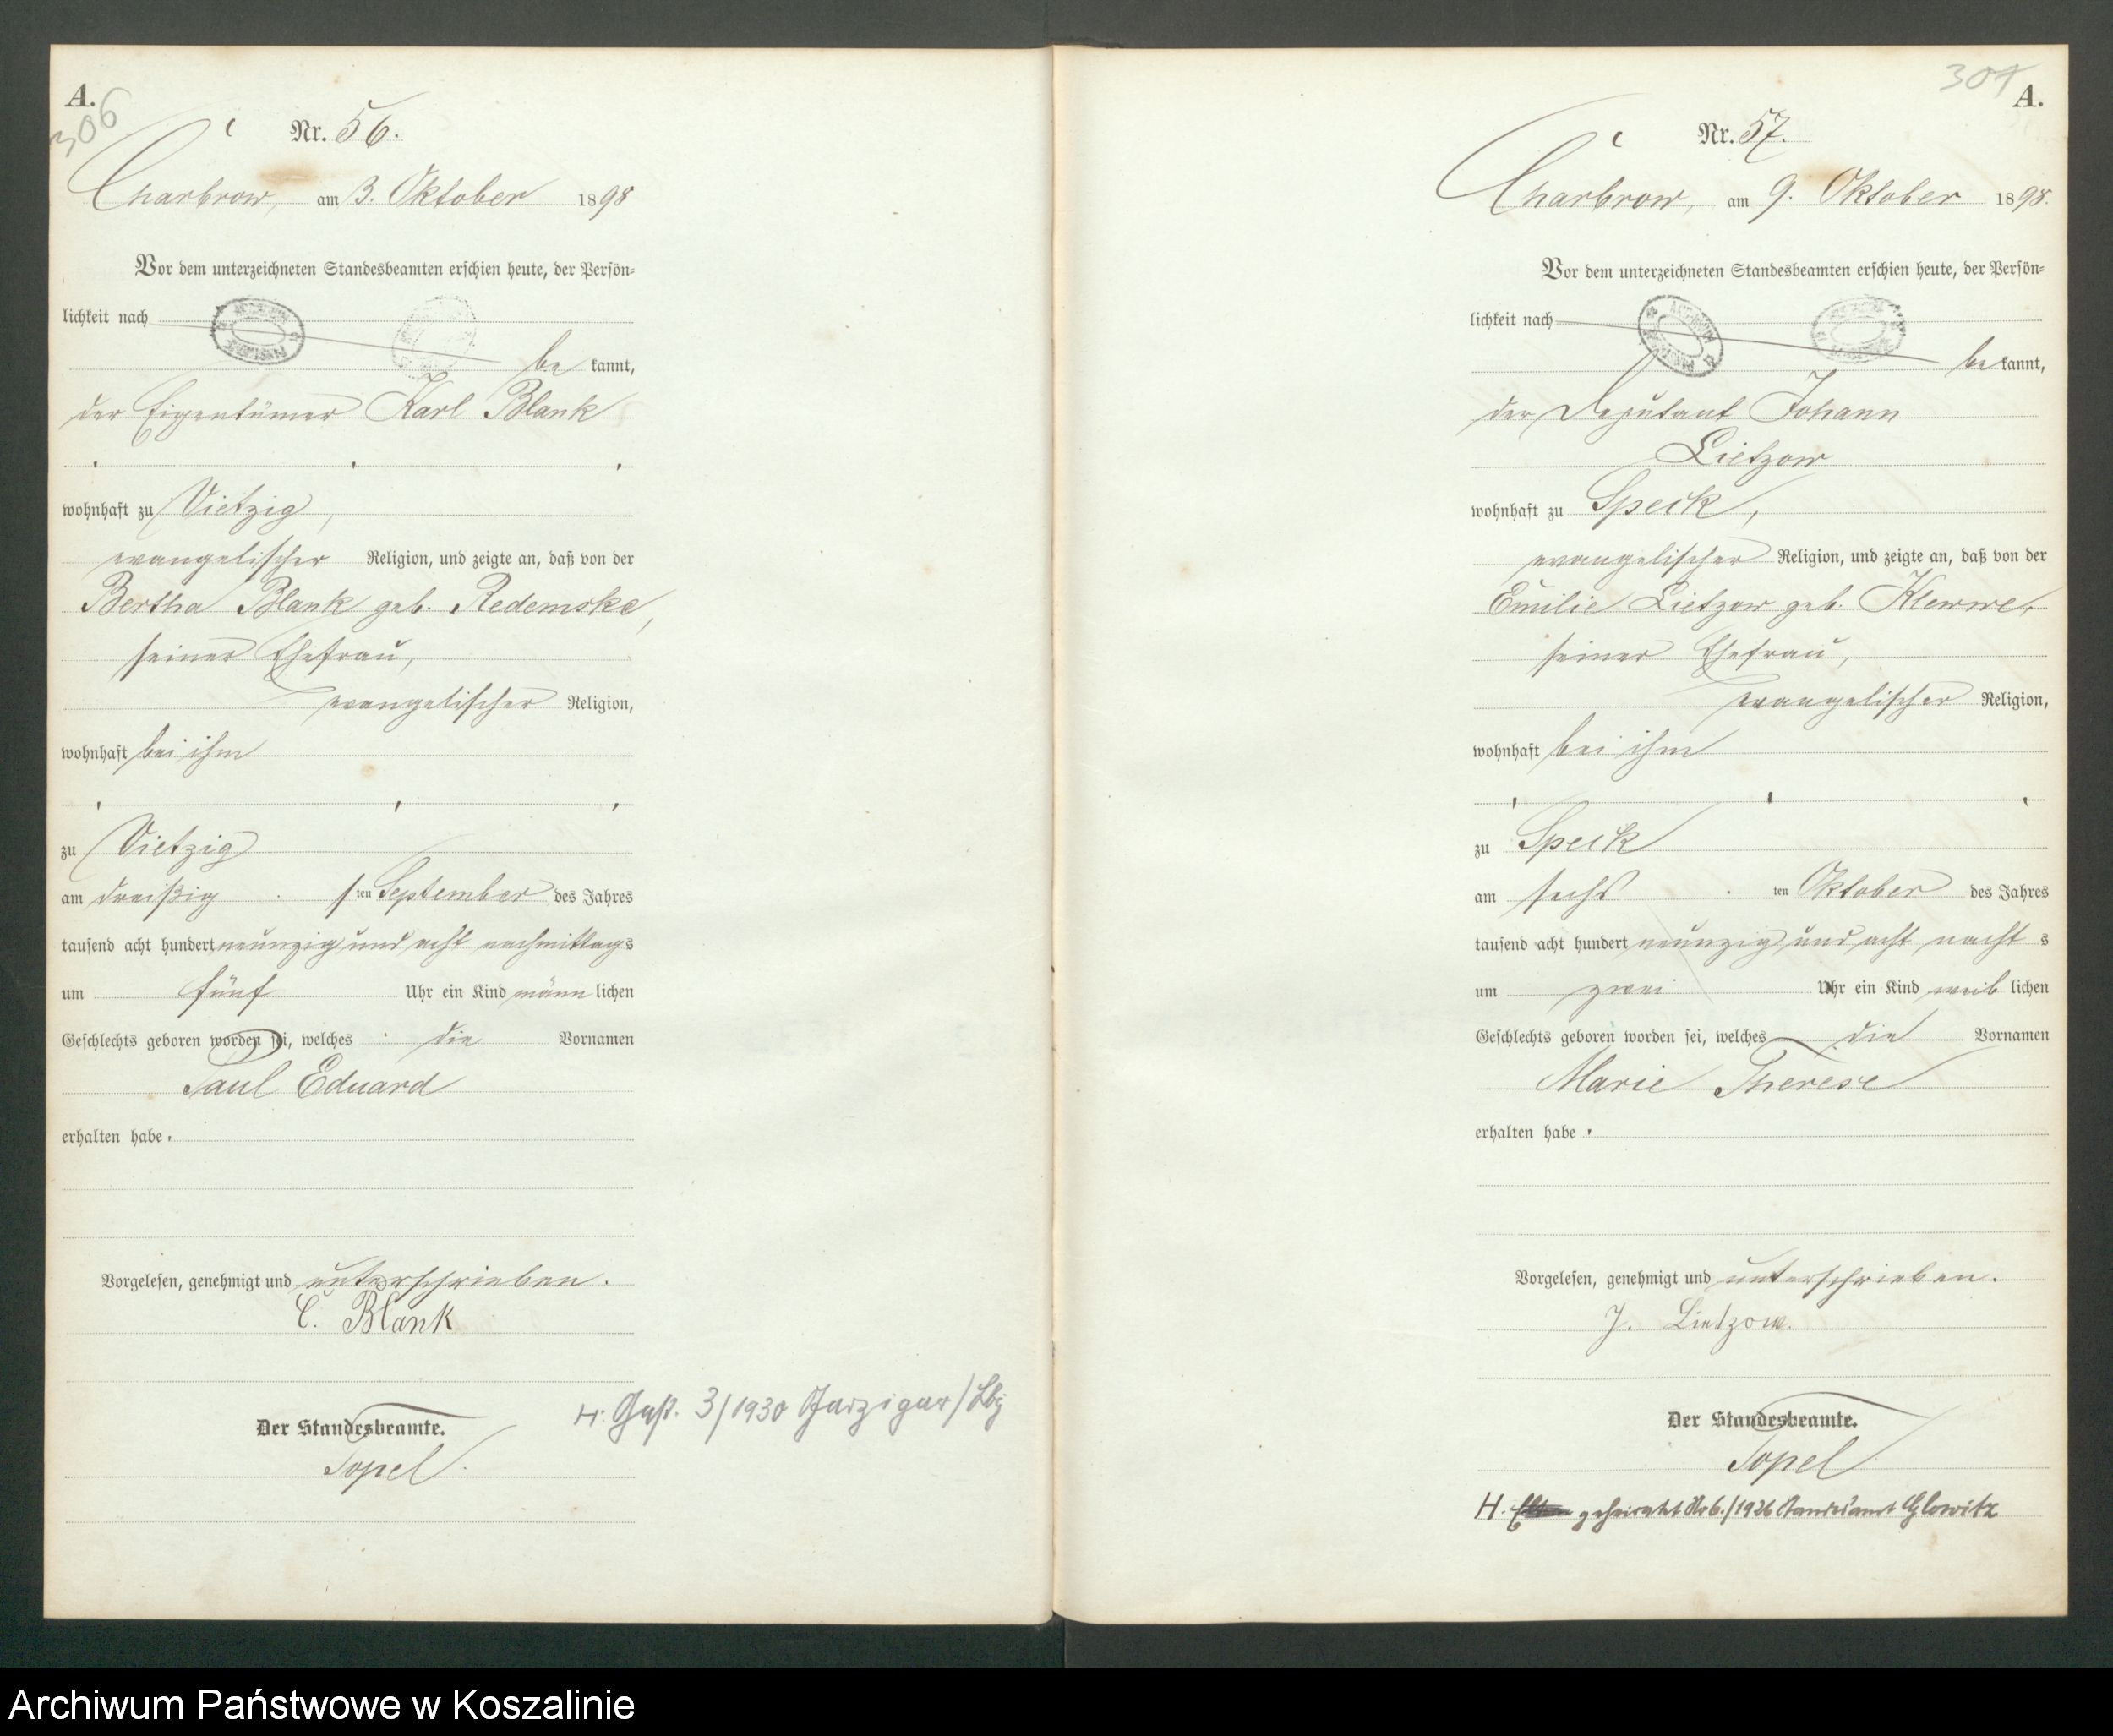 A.
306
Nr. 56.
Charbrow, am 3. Oktober 1898
Vor dem unterzeichneten Standesbeamten erschien heute, der Persön-
lichkeit nach
be kannt,
der Eigentümer Karl Blank
wohnhaft zu Vietzig,
evangelischer Religion, und zeigte an, daß von der
Bertha Blank geb. Redemske,
seiner Ehefrau,
evangelischer Religion,
wohnhaft bei ihm
zu Vietzig
am dreißig sten September des Jahres
tausend acht hundert neunzig und acht nachmittags
um fünf Uhr ein Kind männlichen
Geschlechts geboren worden sei, welches die Vornamen
Paul Eduard
erhalten habe.
Vorgelesen, genehmigt und unterschrieben.
C. Blank
Der Standesbeamte.
Topel.
H: 3/1930
A.
Nr. 57.
Charbrow, am 9. Oktober 1898.
Vor dem unterzeichneten Standesbeamten erschien heute, der Persön-
lichkeit nach
be kannt,
der Deputant Johann
Lietzow
wohnhaft zu Speck,
evangelischer Religion, und zeigte an, daß von der
Emilie Lietzow geb. Klewwe,
seiner Ehefrau,
evangelischer Religion,
wohnhaft bei ihm
zu Speck
am sechs ten Oktober des Jahres
tausend acht hundert neunzig und acht nacht s
um zwei Uhr ein Kind weib lichen
Geschlechts geboren worden sei, welches die Vornamen
Marie Therese
erhalten habe.
Vorgelesen, genehmigt und unterschrieben.
J. Lietzow.
Der Standesbeamte.
Topel
H. geheiratet Nr 6./1926 Standesamt Glowitz
Archiwum Państwowe w Koszalinie